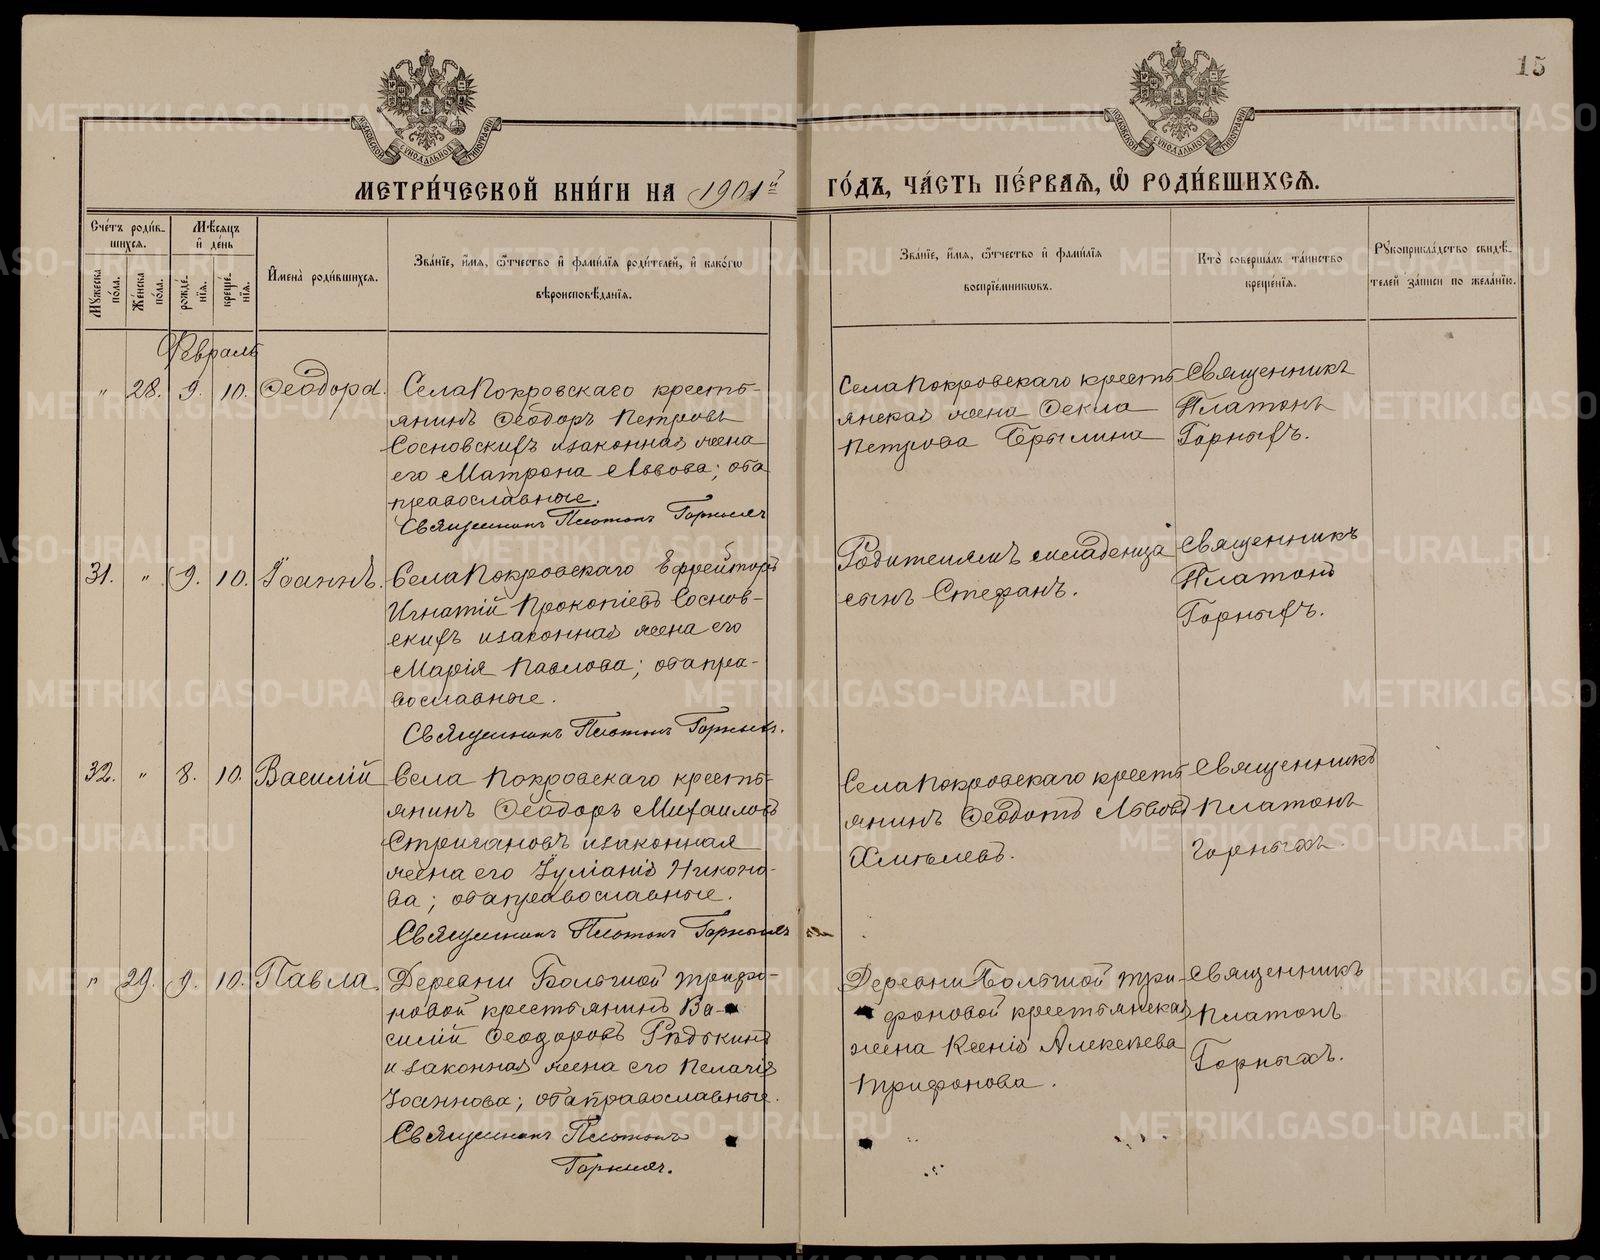 15
МОСКОВСКОЙ СѴНОДАЛЬНОЙ ТИПОГРАФІИ
МОСКОВСКОЙ СѴНОДАЛЬНОЙ ТИПОГРАФІИ
МЕТРИ́ЧЕСКОЙ КНИ́ГИ НА 1901й ГО́ДЪ, ЧА́СТЬ ПЕ́РВАЯ, Ѡ҆ РОДИ́ВШИХСЯ.
Сче́тъ роди́в-
шихся.
Мꙋжеска по́ла.
Же́нска по́ла.
Мѣ́сяцъ
и҆ де́нь
рожде́-
нїя.
креще́-
нїя.
И҆мена̀ роди́вшихся.
Зва́нїе, и҆́мя, ѻ҆́тчество и҆ фами́лїя роди́телей, и҆ како́гѡ
вѣроисповѣ́данїя.
Зва́нїе, и҆́мя, ѻ҆́тчество и҆ фами́лїя
воспрїе́мникѡвъ.
Кто̀ соверша́лъ та́инство
креще́нїя.
Рꙋкоприкла́дство свидѣ́-
телей за́писи по жела́нїю.
Февраль
" 28. 9. 10. Ѳеодора.
Села Покровскаго кресть-
янинъ Ѳеодоръ Петровъ
Сосновскихъ и законная жена
его Матрона Львова; оба
православные.
Священникъ Платонъ Горныхъ
Села Покровскаго кресть-
янская жена Ѳекла
Петрова Брылина
Священникъ
Платонъ
Горныхъ.
31. " 9. 10. Іоаннъ.
Села Покровскаго Ефрейторъ
Игнатій Прокопіевъ Соснов-
скихъ и законная жена его
Марія Павлова; оба пра-
вославные.
Священникъ Платонъ Горныхъ.
Родителямъ младенца
сынъ Стефанъ.
Священникъ
Платонъ
Горныхъ.
32. " 8. 10. Василій
Села Покровскаго кресть-
янинъ Ѳеодоръ Михаиловъ
Стригановъ и законная
жена его Іуліанія Никоно-
ва; оба православные.
Священникъ Платонъ Горныхъ
Села Покровскаго кресть-
янинъ Ѳеодотъ Львовъ
Хмѣлевъ.
Священникъ
Платонъ
Горныхъ.
" 29. 9. 10. Павла.
Деревни Большой Трифо-
новой крестьянинъ Ва-
силій Ѳеодоровъ Рѣдькинъ
и законная жена его Пелагія
Іоаннова; оба православные.
Священникъ Платонъ
Горныхъ.
Деревни Большой Три-
фоновой крестьянская
жена Ксенія Алексѣева
Трифонова.
Священникъ
Платонъ
Горныхъ.
METRIKI.GASO-URAL.RU